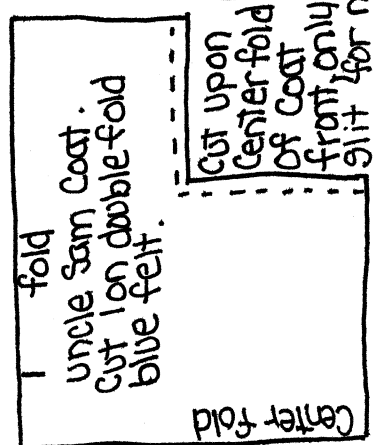 fold
uncle Sam Coat.
Cut 1 on double fold
blue felt.
Cut upon
Center fold
of Coat
front only
slit for
Center Fold